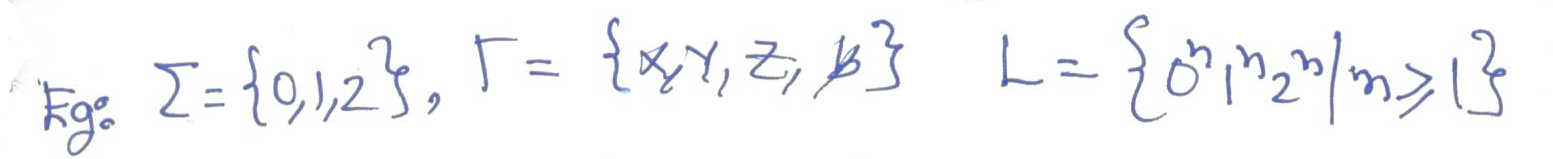 Eg: Σ={0,1,2}, Γ= {X,Y, Z, ƀ} L= {0ⁿ1ⁿ2ⁿ|n⩾1}